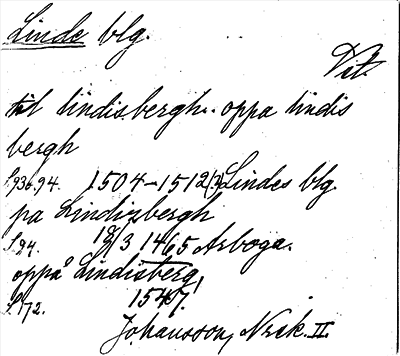 Linde blg.
Vtl.
til lindisbergh. oppa lindis
bergh
S. 93b, 94. 1504–1512(?) Lindes blg.
pa Lindizbergh
S. 94. 18/3 1465 Arboga.
oppå Lindisberg
S. 172. 1547.
Johansson, Nrsk. II.